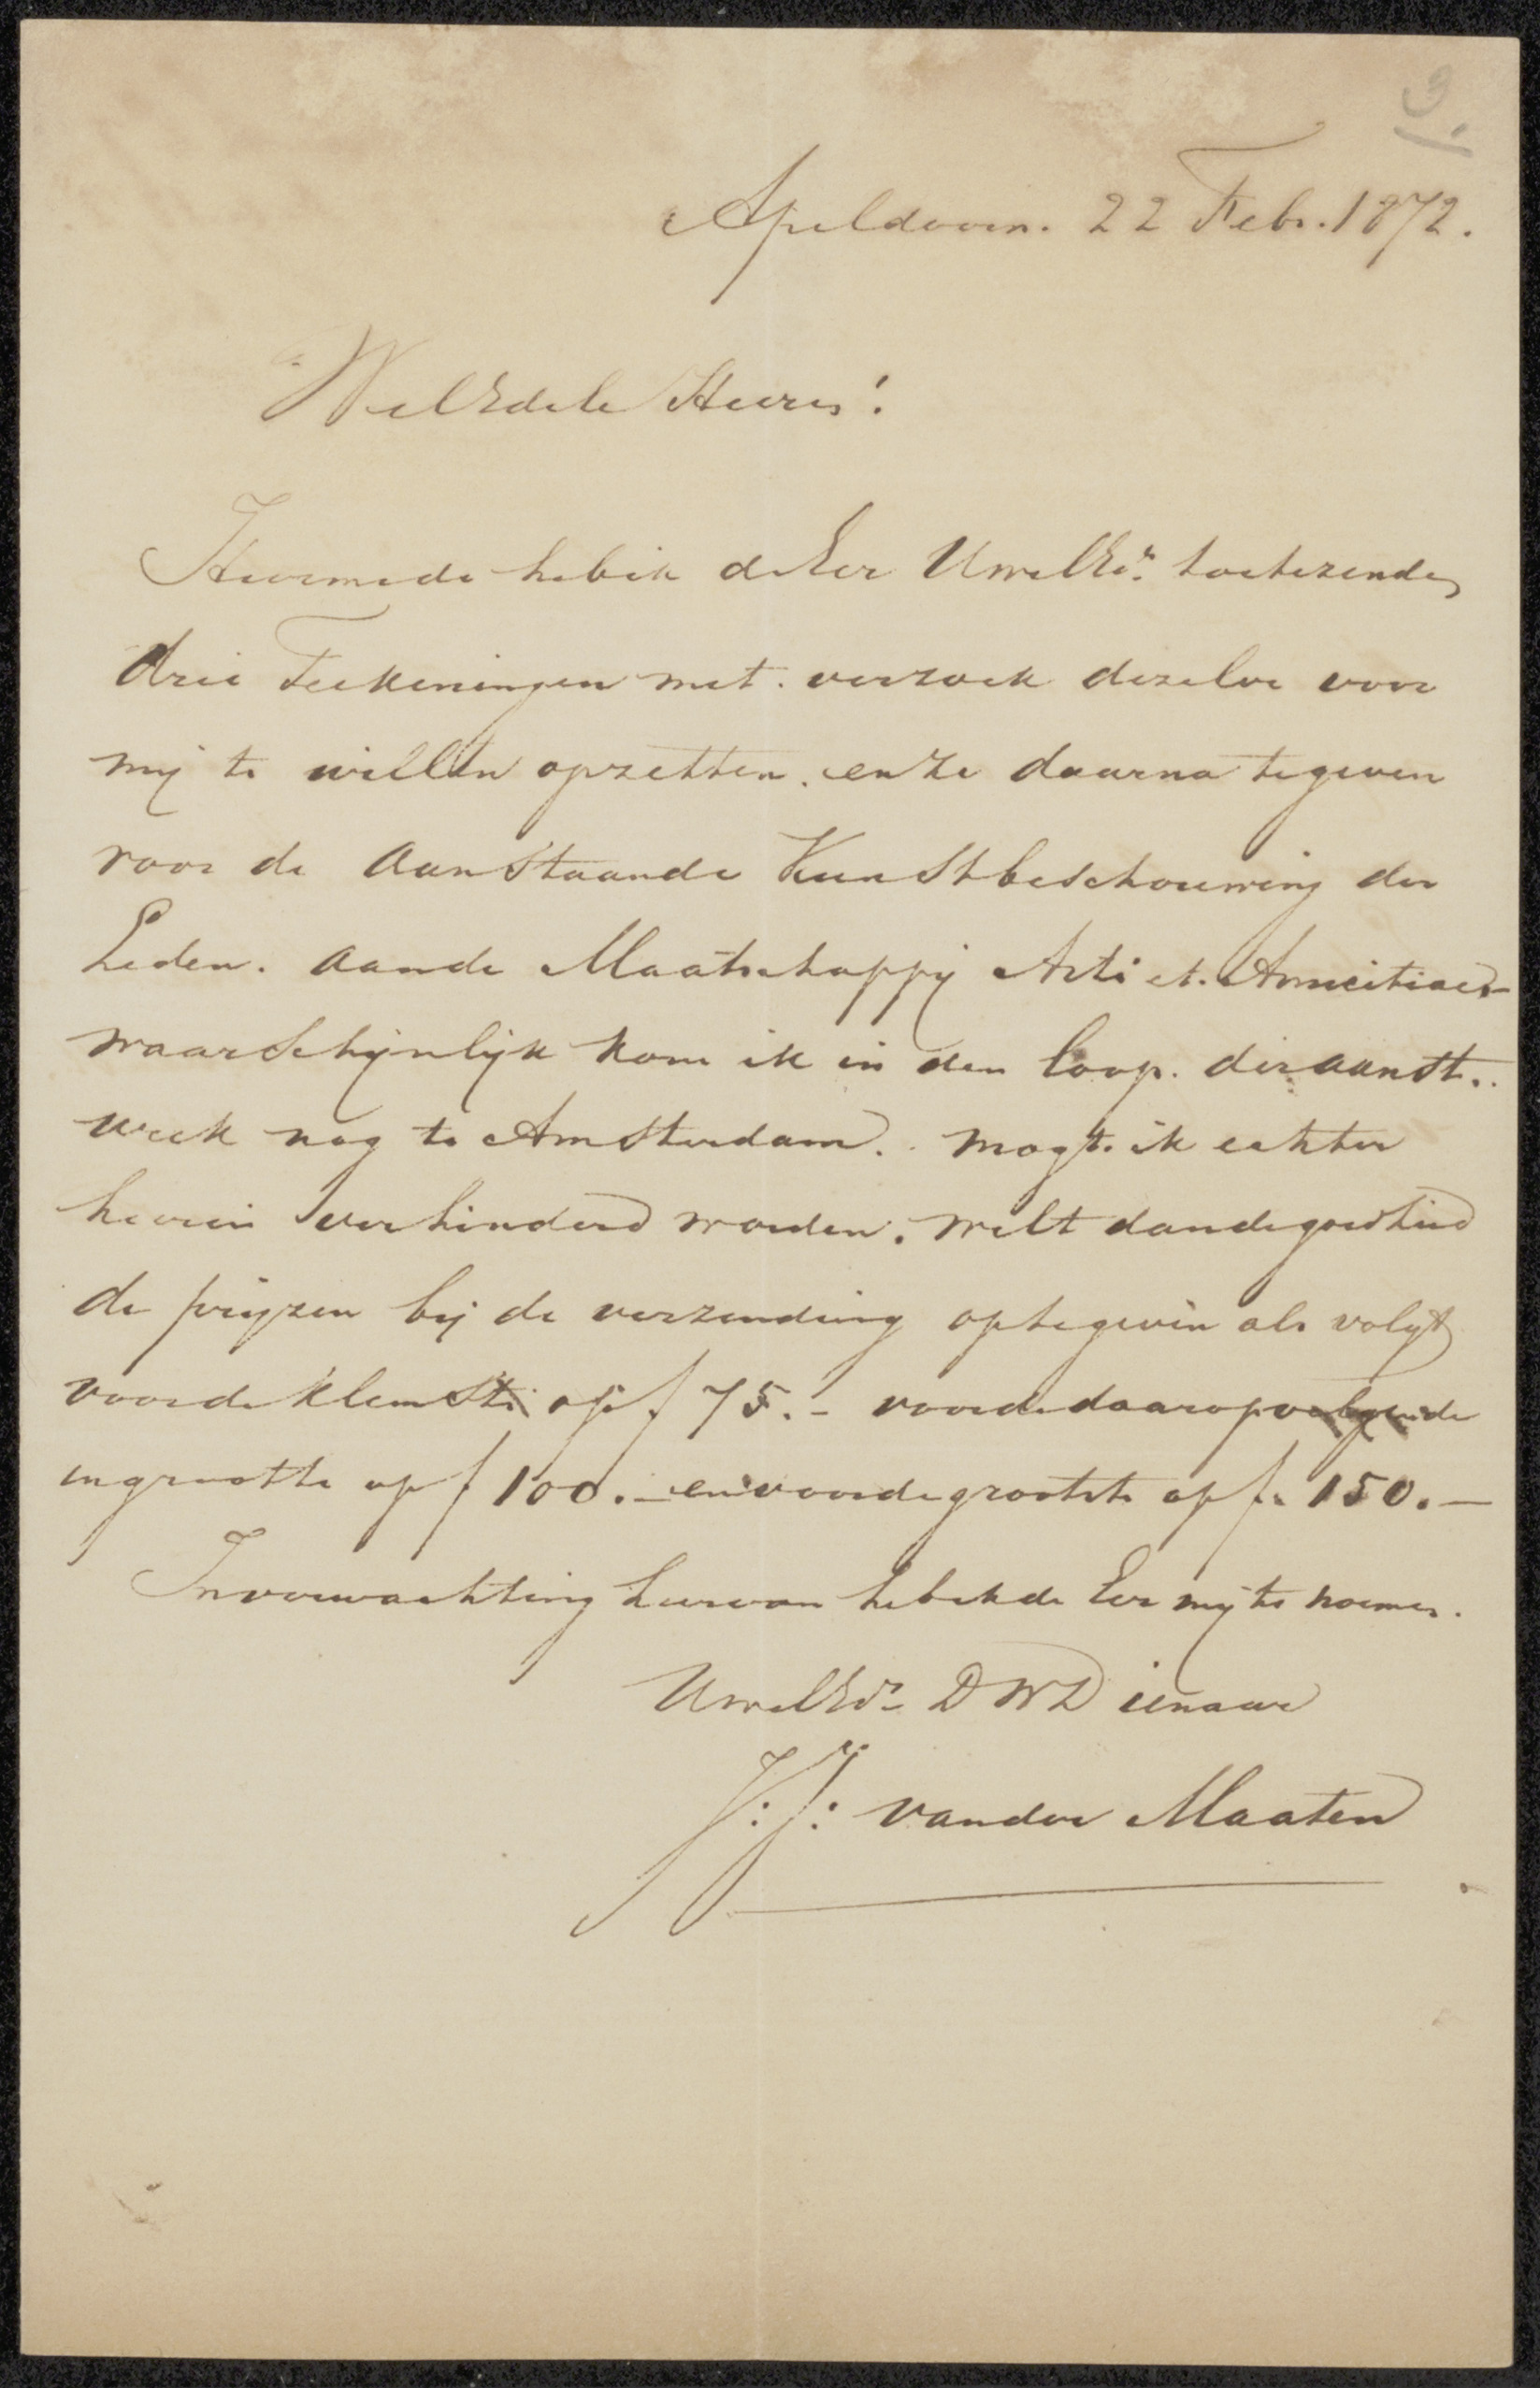 Apeldoorn. 22 Febr. 1872.
WelEdele Heeren!
Hiermede hebik de Eer UwelEdn. toetezenden
drie Teekeningen met verzoek dezelve voor
mij te willen opzetten. enze daarna tegeven
voor de aanstaande Kunstbeschouwing der
Leden. aande Maatschappij Arti et Amicitiae.-
waarschijnlijk kom ik in den loop. der aanst..
week nog te Amsterdam. mogt ik echter
hierin verhinderd worden. welt dandegoedheid
de prijzen bij de verzending optegeven als volgt
voorde kleinste op f 75.- voordedaaropvolgende
ingrootte op f 100.- envoordegrootste op f. 150.-
Inverwachting hiervan hebikde Eer mij te noemen.
UwelEdn DWDienaar
J: J: vander Maaten